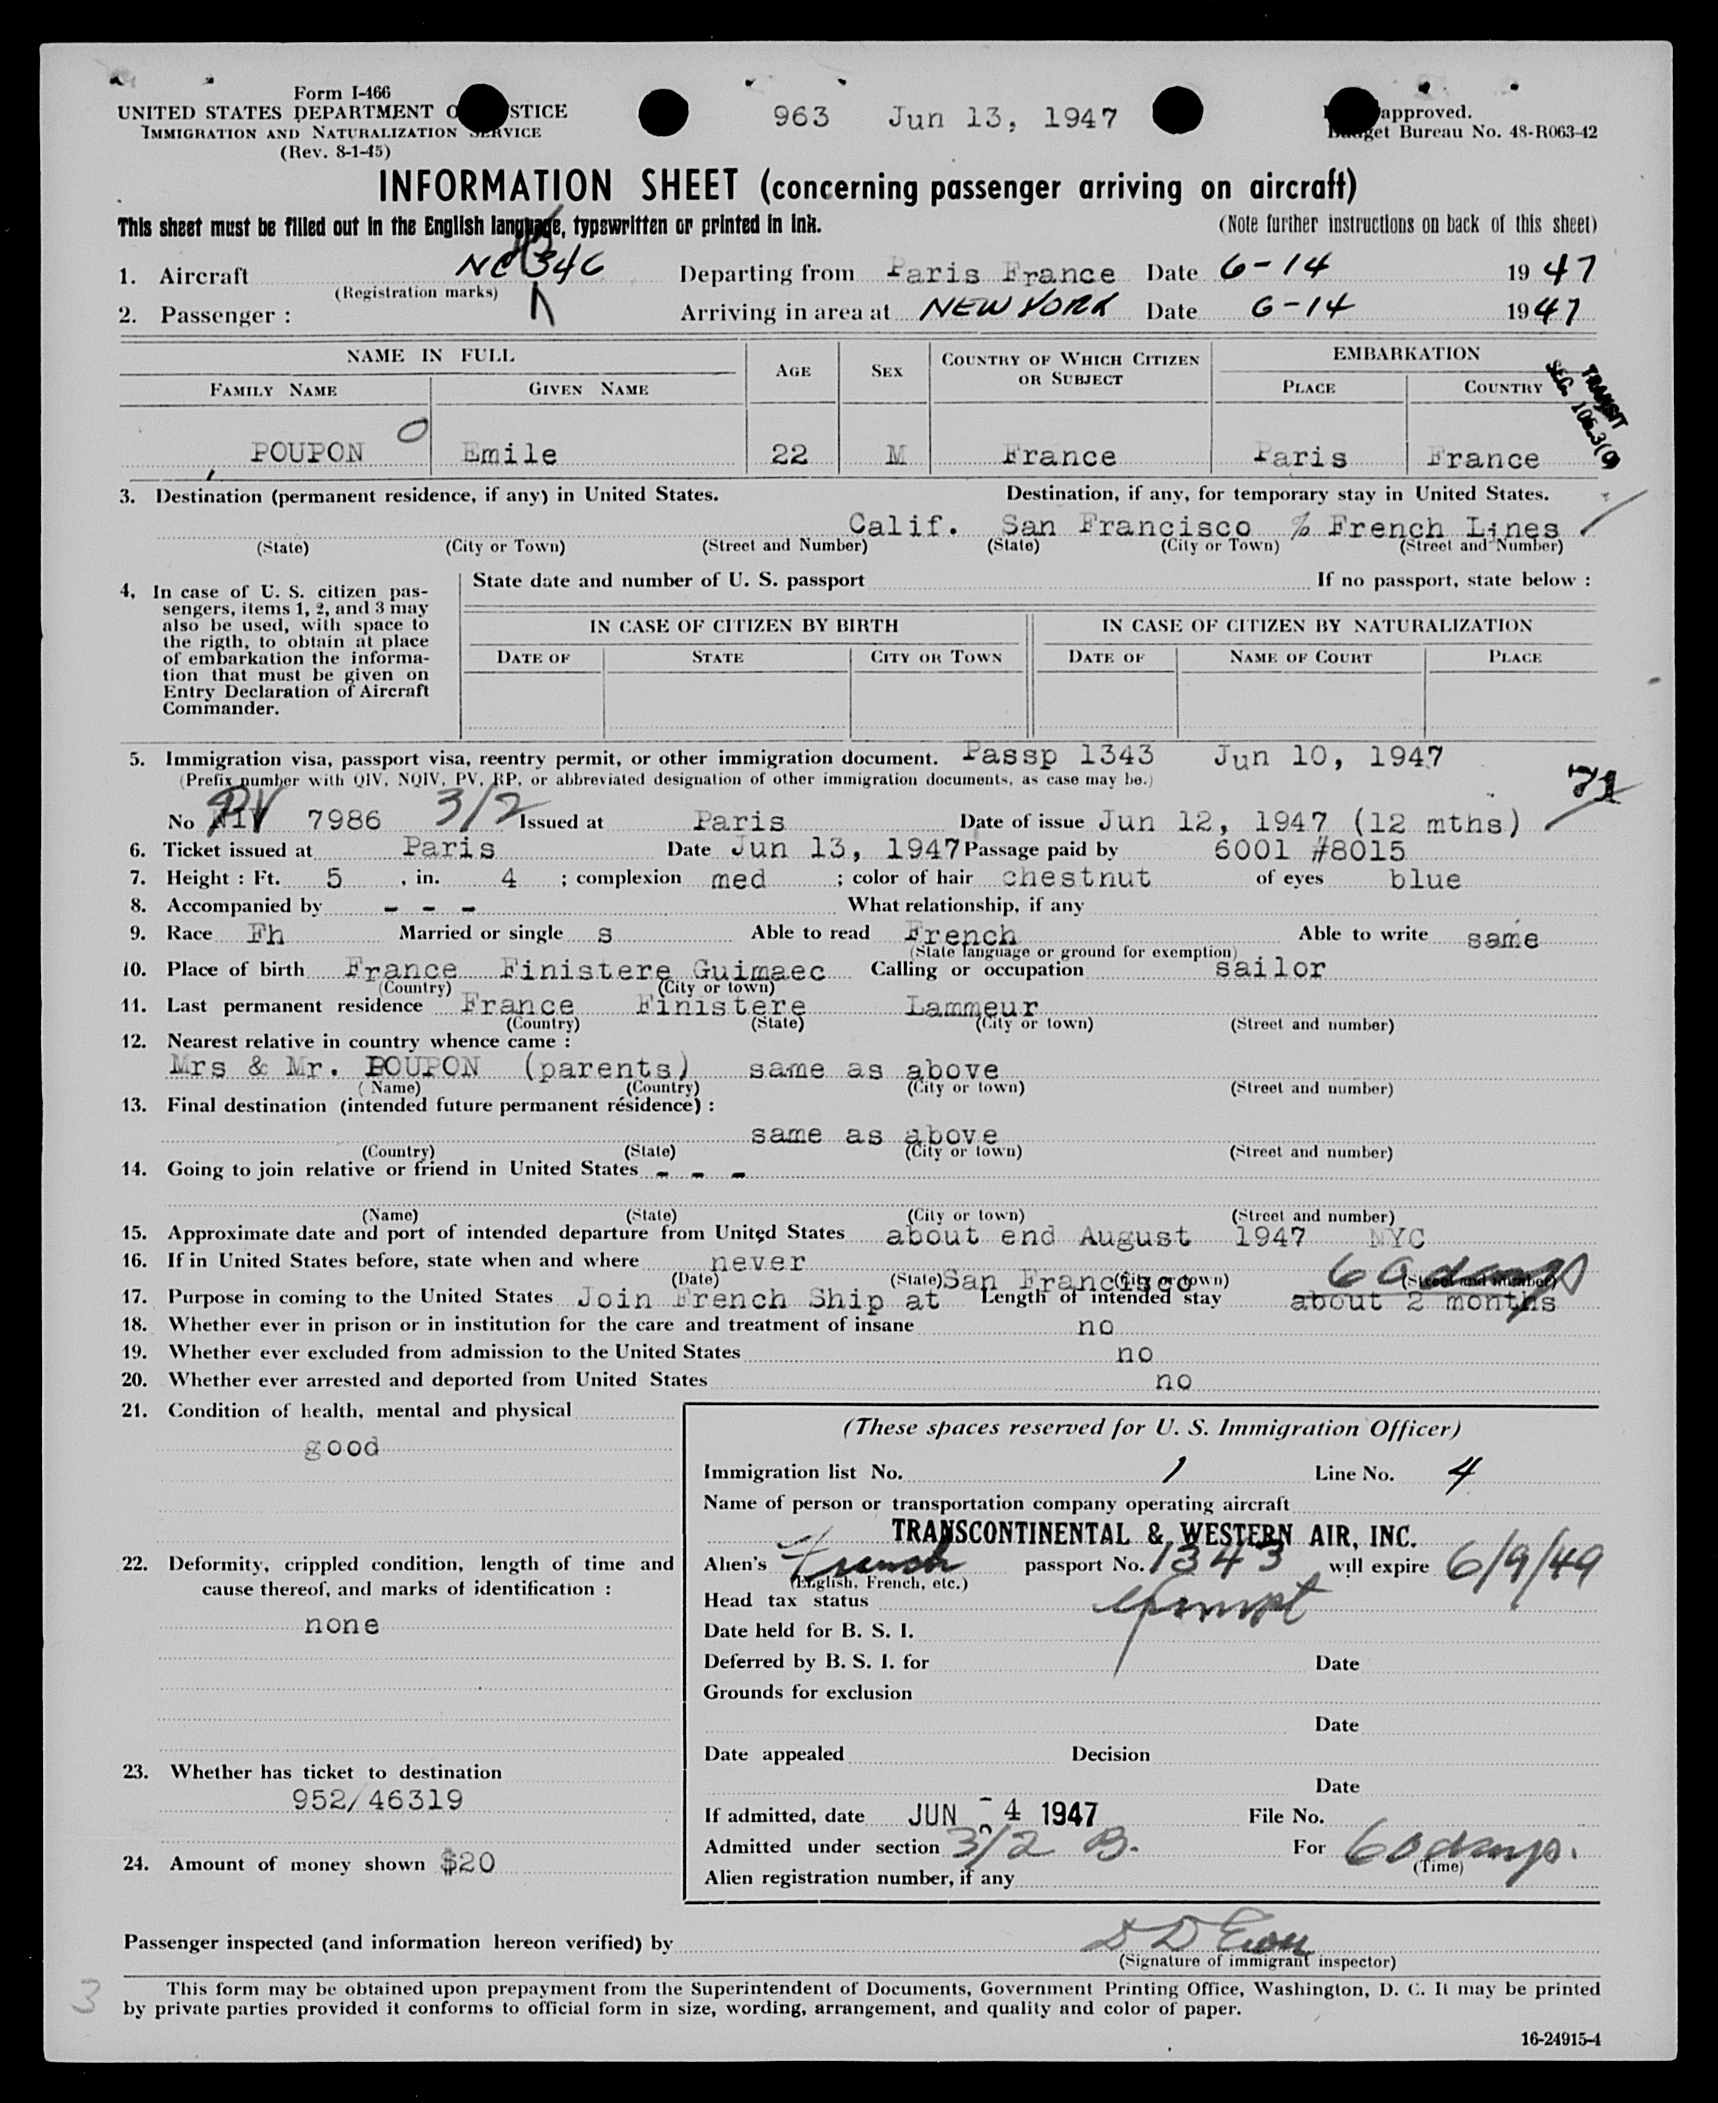 Form I-466
UNITED STATES DEPARTMENT O STICE
IMMIGRATION AND NATURALIZATION SERVICE
(Rev. 8-1-45)
963 Jun 13, 1947
approved.
Budget Bureau No. 48-R063-42
INFORMATION SHEET (concerning passenger arriving on aircraft)
This sheet must be filled out in the English language, typewritten or printed in ink.
(Note further instructions on back of this sheet)
1. Aircraft NC 346 Departing from Paris France Date 6-14 1947
(Registration marks)
2. Passenger : Arriving in area at NEW YORK Date 6-14 1947
NAME IN FULL
FAMILY NAME GIVEN NAME AGE SEX COUNTRY OF WHICH CITIZEN OR SUBJECT EMBARKATION PLACE COUNTRY
TRANSIT
SEC. 106.3(
POUPON Emile 22 M France Paris France
3. Destination (permanent residence, if any) in United States. Destination, if any, for temporary stay in United States.
Calif. San Francisco % French Lines
(State) (City or Town) (Street and Number) (State) (City or Town) (Street and Number)
4, In case of U. S. citizen pas-
sengers, items 1, 2, and 3 may
also be used, with space to
the rigth, to obtain at place
of embarkation the informa-
tion that must be given on
Entry Declaration of Aircraft
Commander.
State date and number of U. S. passport If no passport, state below :
IN CASE OF CITIZEN BY BIRTH IN CASE OF CITIZEN BY NATURALIZATION
DATE OF STATE CITY OR TOWN DATE OF NAME OF COURT PLACE
5. Immigration visa, passport visa, reentry permit, or other immigration document. Passp 1343 Jun 10, 1947
(Prefix number with QIV, NQIV, PV, RP, or abbreviated designation of other immigration documents, as case may be.)
71
No PV NIV 7986 3/2 Issued at Paris Date of issue Jun 12, 1947 (12 mths)
6. Ticket issued at Paris Date Jun 13, 1947 Passage paid by 6001 #8015
7. Height : Ft. 5 , in. 4 ; complexion med ; color of hair chestnut of eyes blue
8. Accompanied by - - - What relationship, if any
9. Race Fh Married or single s Able to read French Able to write same
(State language or ground for exemption)
10. Place of birth France Finistere Guimaec Calling or occupation sailor
(Country) (City or town)
11. Last permanent residence France Finistere Lammeur
(Country) (State) (City or town) (Street and number)
12. Nearest relative in country whence came :
Mrs & Mr. POUPON (parents) same as above
( Name) (Country) (City or town) (Street and number)
13. Final destination (intended future permanent résidence) :
same as above
(Country) (State) (City or town) (Street and number)
14. Going to join relative or friend in United States - - -
(Name) (State) (City or town) (Street and number)
15. Approximate date and port of intended departure from United States about end August 1947 NYC
16. If in United States before, state when and where never
60 days
(Date) (State) (City or town) (Street and number)
17. Purpose in coming to the United States Join French Ship at San Francisco Length of intended stay about 2 months
18. Whether ever in prison or in institution for the care and treatment of insane no
19. Whether ever excluded from admission to the United States no
20. Whether ever arrested and deported from United States no
21. Condition of health, mental and physical
good
22. Deformity, crippled condition, length of time and
cause thereof, and marks of identification :
none
23. Whether has ticket to destination
952/46319
24. Amount of money shown $20
(These spaces reserved for U. S. Immigration Officer)
Immigration list No. 1 Line No. 4
Name of person or transportation company operating aircraft
TRANSCONTINENTAL & WESTERN AIR, INC.
Alien's French passport No. 1343 will expire 6/9/49
(English, French, etc.)
Head tax status Exempt
Date held for B. S. I.
Deferred by B. S. I. for Date
Grounds for exclusion
Date
Date appealed Decision
Date
If admitted, date JUN 4 1947 File No.
Admitted under section 3/2 B. For 60 days.
(Time)
Alien registration number, if any
Passenger inspected (and information hereon verified) by
(Signature of immigrant inspector)
3
This form may be obtained upon prepayment from the Superintendent of Documents, Government Printing Office, Washington, D. C. It may be printed
by private parties provided it conforms to official form in size, wording, arrangement, and quality and color of paper.
16-24915-4